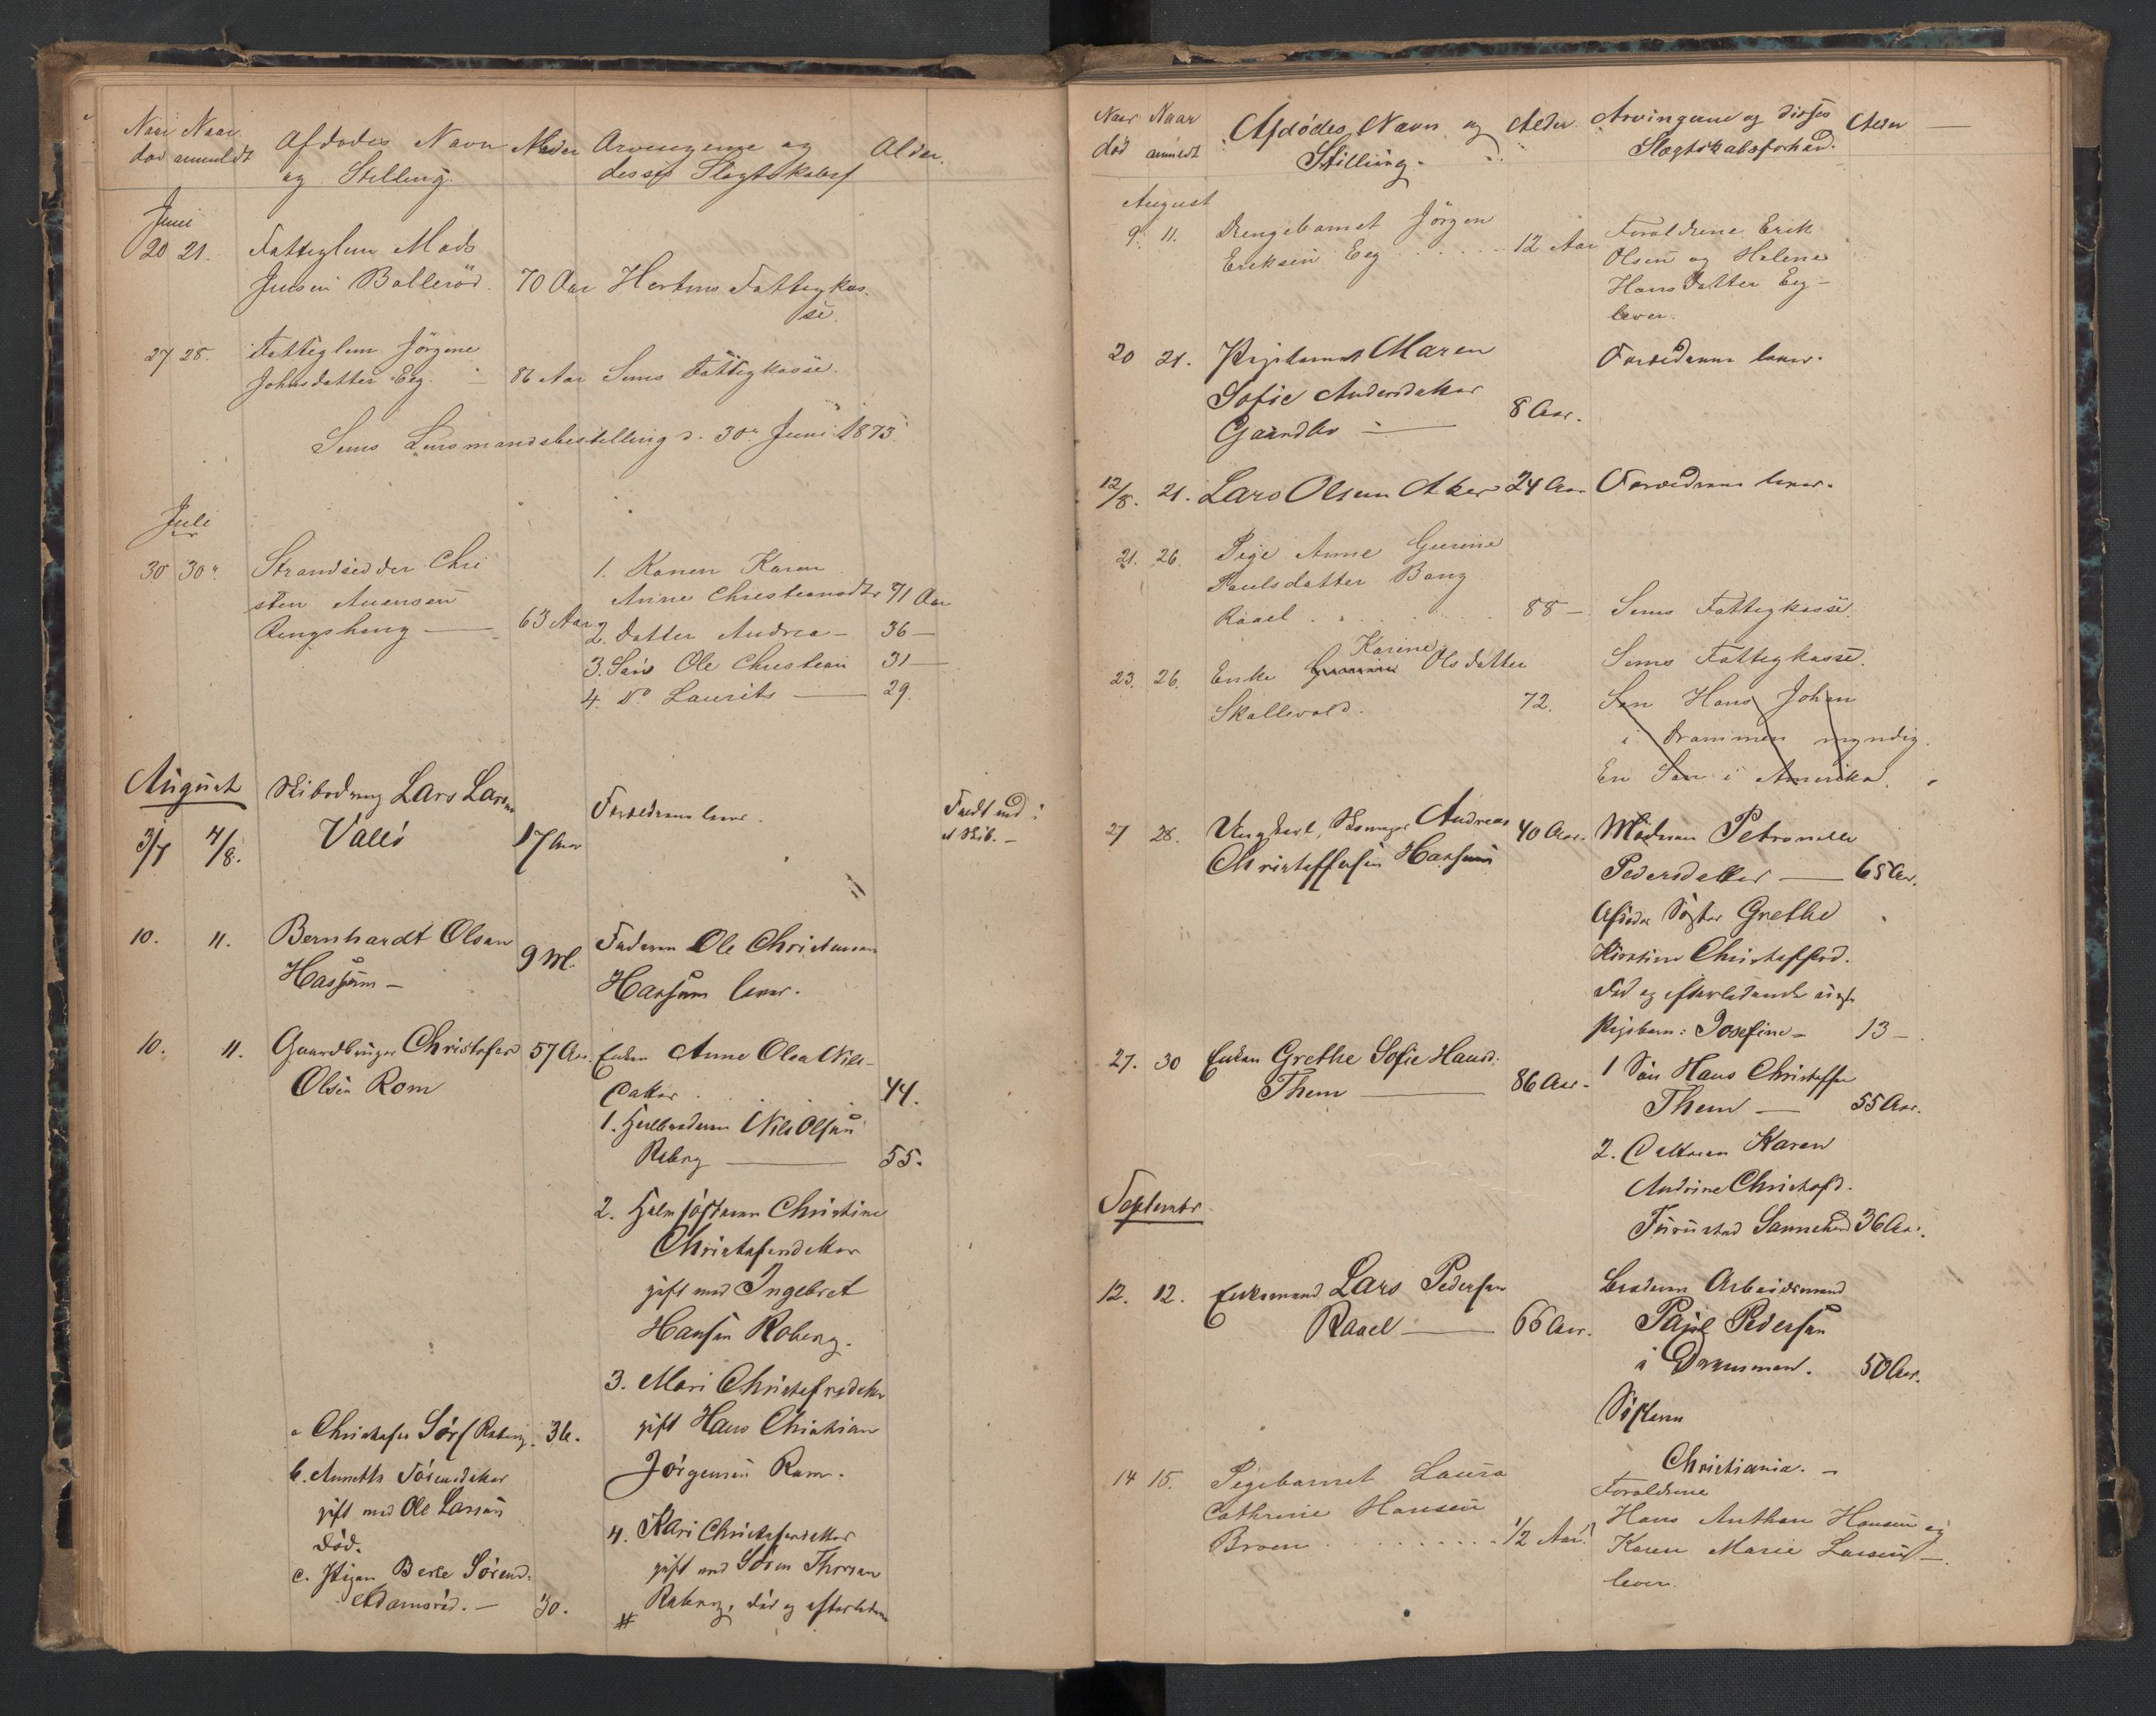 Naar Naar
død anmeldt
Afdødes Navn
og Stilling.
Alder
Arvingerne og
disses Slægtskabsf
Alder.
Juni
20 21. Fattiglem Mads
Jensen Bollerød. 70 Aar Hertens Fattigkas-
se.
27 28. Fattiglem Jörgine
Johnsdatter Eeg. — 86 Aar Sems Fattigkasse.
Sems Lensmandsbestilling d. 30te Juni 1873.
Juli
30 30. Strandsidder Chri
sten Auensen
Ringshaug — 63 Aar
1. Konen Karen
Anne Christensdtr 71 Aar
2. Datter Andrea — 36 —
3. Sön Ole Christian 31 —
4. Do Laurits — 29.
August Skibsdreng Lars Larsen
3/7 4/8. Vallö 17 Aar Forældrene lever. Faldt ud i
et Skib. —
10. 11. Bernhardt Olsen 9 M. Faderen Ole Christensen
Hassum — Hassum lever.
10. 11. Gaardbruger Christofer 57 Aar. Enken Anne Olea Nils-
Olsen Rom datter . 44.
1. Halbroderen Nils Olsen
Roberg — 55.
2. Halvsösteren Christine
Christofersdatter
gift med Ingebret
Hansen Roberg.
3. Mari Christofersdatter
gift Hans Christian
Jörgensen Rom.
4. Kari Christofersdatter
gift med Sören Thorsen
# Roberg, död og efterladt
a Christofer Sörs Roberg. 36.
b. Annette Sörensdatter
gift med Ole Larsen
död.
c. Pigen Berte Sörensd.
Adamsröd. — 30.
Naar Naar
død anmeldt
Afdødes Navn og
Stilling.
Alder.
Arvingerne og disses
Slægtskabsforhold.
Alder —
August
9. 11. Drengebarnet Jörgen
Eriksen Eeg . . . . . 12 Aar
Forældrene Erik
Olsen og Helene
Hansdatter Eeg —
lever.
20 21. Pigebarnet Maren
Sofie Andersdatter
Gaardbo — 8 Aar.
Forældrene lever.
12/8. 21. Lars Olsen Aker 24 Aar Forældrene lever.
21. 26. Pige Anne Gurine
Paulsdatter Bang
Raael . . . . . . 88 — Sems Fattigkasse.
Karine
23. 26. Enke Olsdatter
Skallevold. 72.
Sems Fattigkasse.
Sön Hans Johan
i Drammen myndig.
En Sön i Amerika.
27 28. Ungkarl, Andreas 40 Aar.
Christoffersen Hassum
Moderen Petronelle
Pedersdatter — 65 Aar.
Afdöde Söster Grethe
Kirstine Christoffersd.
död og efterladende sig
Pigebarn: Josefine — 13 —
27. 30 Enken Grethe Sofie Hansd.
Them — 86 Aar.
1 Sön Hans Christoffer
Them — 55 Aar.
2. Datteren Karen
Andrine Christofd.
Furustad Sannehd 36 Aar.
September
12. 12. Enkemand Lars Pedersen
Raael — 66 Aar.
Broderen Arbeidsmand
Paul Pedersen
i Drammen. 50 Aar.
Sösteren
Christiania. —
14 15. Pigebarnet Laura
Cathrine Hansen
Broen . . . . . . . 1/2 Aar.
Forældrene
Hans Anthon Hansen og
Karen Marie Larsen —
lever.